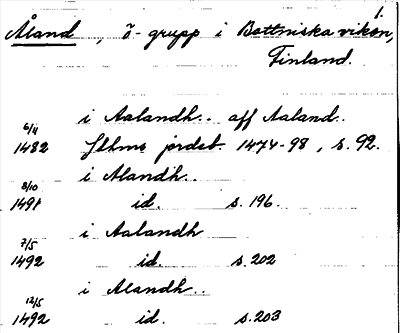 1.
Åland, ö-grupp i Bottniska viken,
Finland.
i Aalandh.. aff Aaland..
6/11
1482 Sthms jordeb. 1474-98, s. 92.
i Alandh..
8/10
1491 id. s. 196.
i Aalandh
7/5
1492 id. s. 202
i Alandh..
12/5
1492 id. s. 203